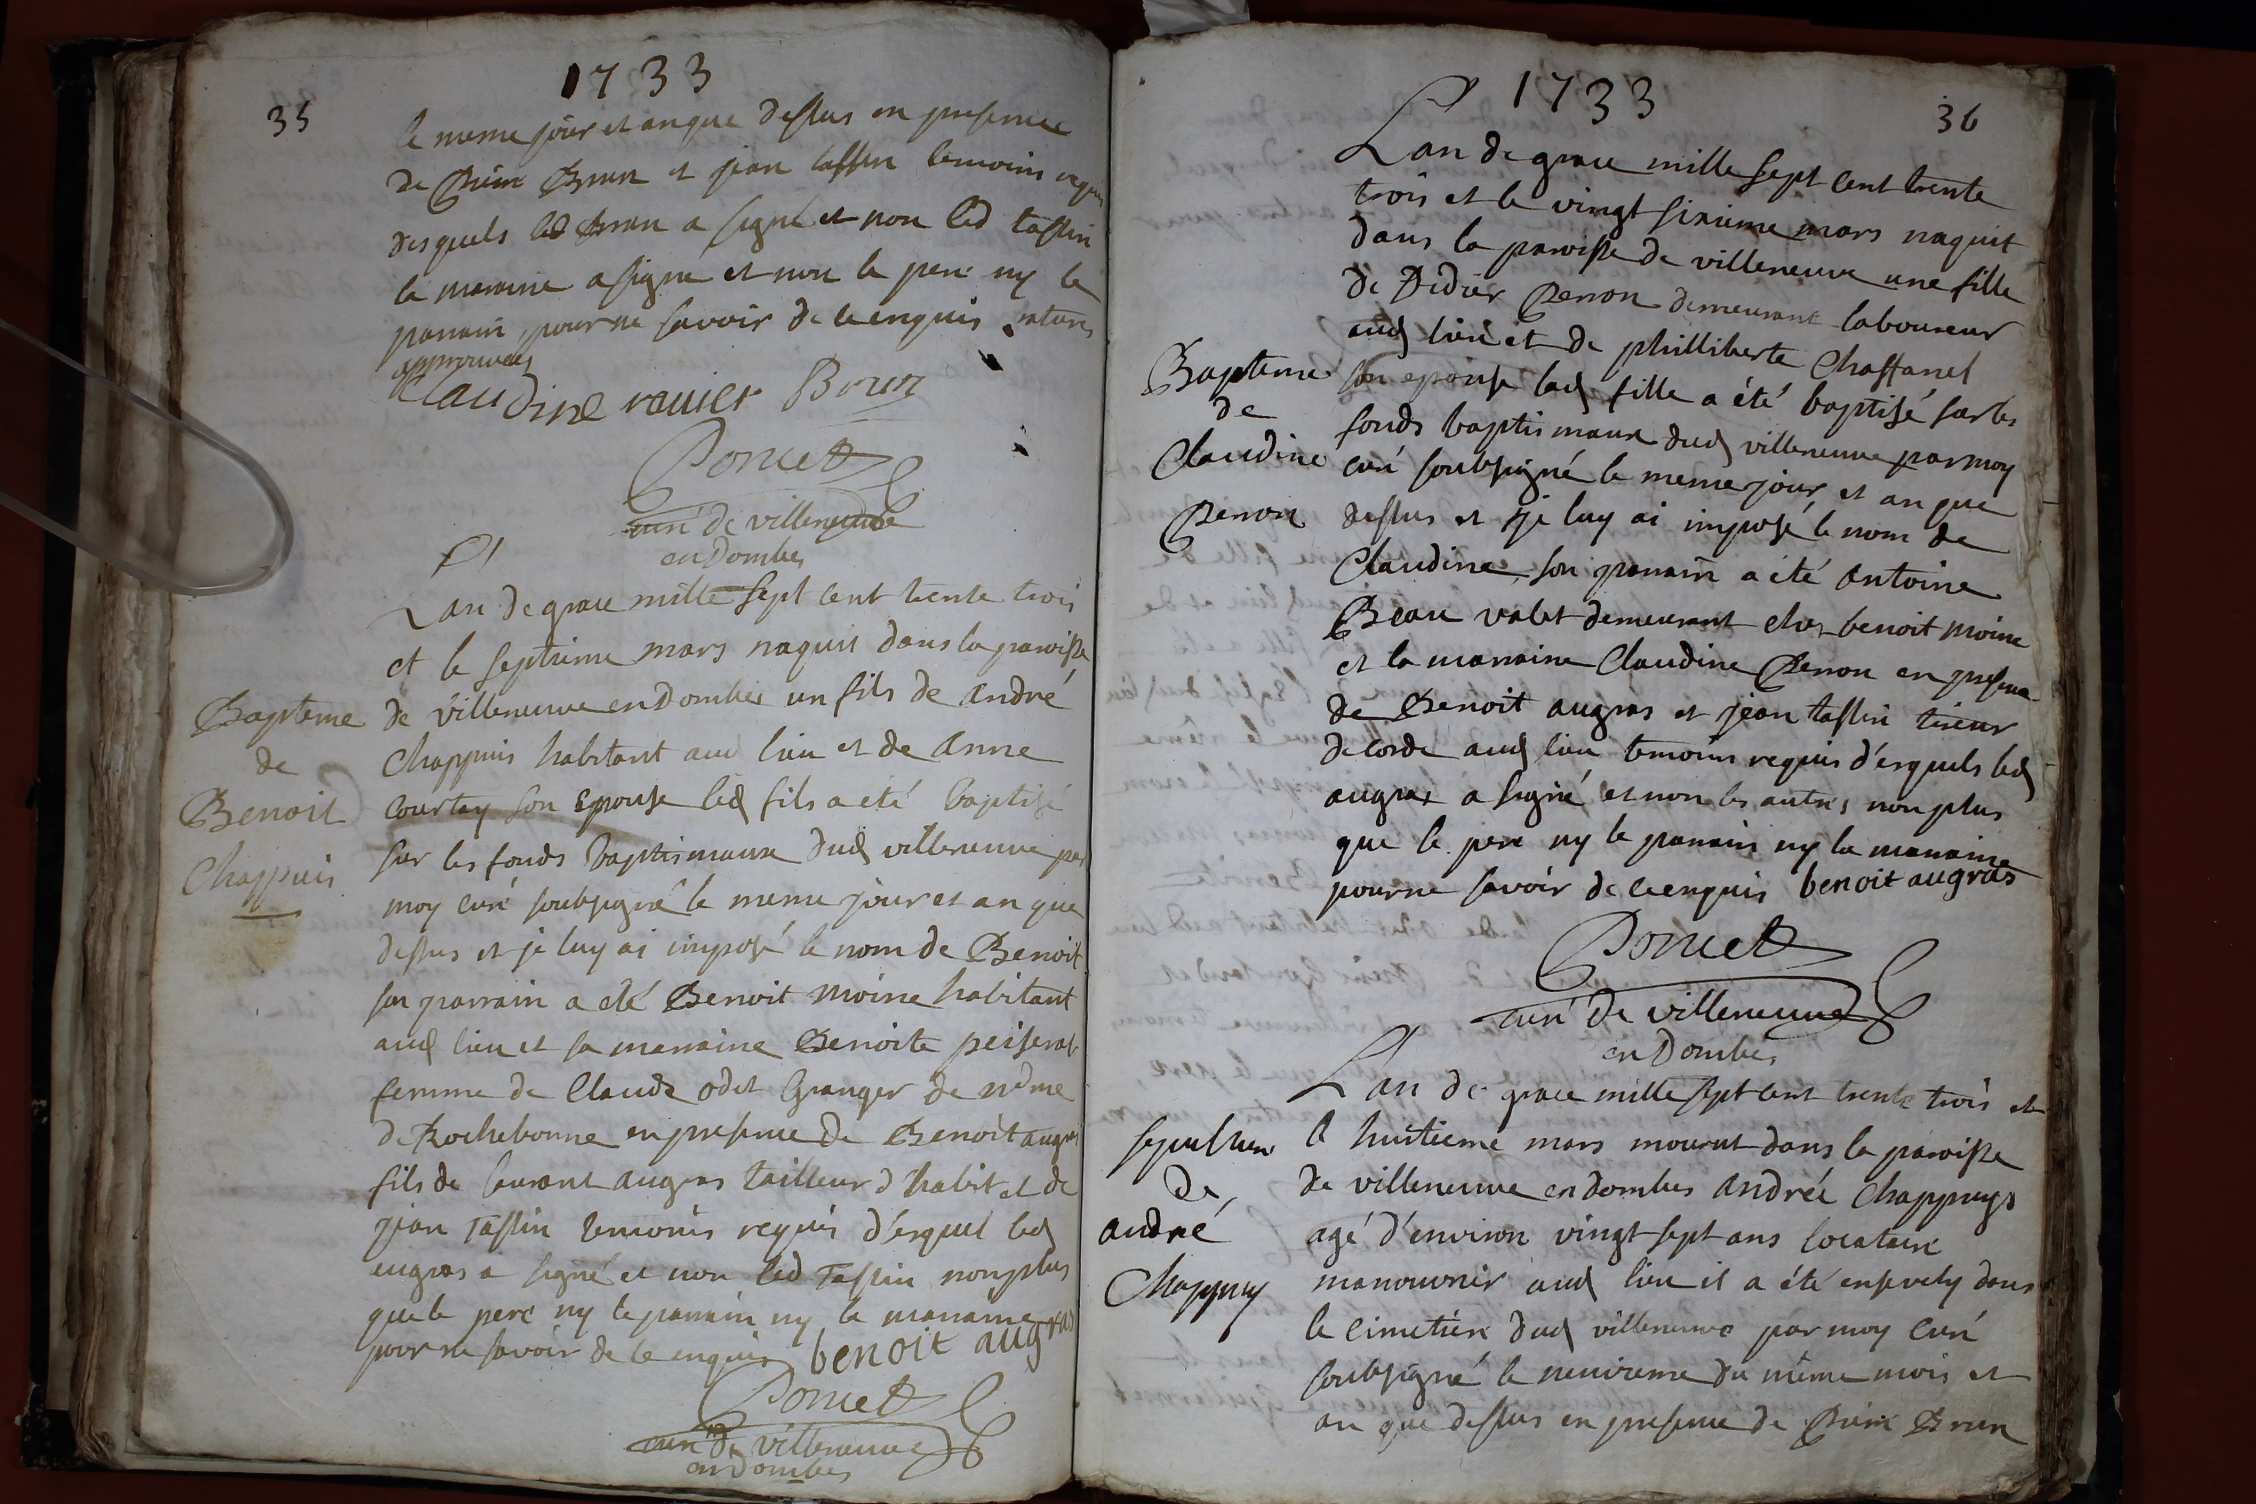 1733
35
le meme jour et an que dessus en presence
de Brun et jean tassin temoins requis
desquels led Brun a signé et non led tassin
la maraine a signé et non le pere ny le
parrain pour ne savoir de ce enquis ratures
approuvées
Claudine ravier Brun
Poncet
curé de villeneuve
en Dombes
Lan de grace mille sept cent trente trois
et le septieme mars naquit dans la paroisse
Bapteme
de
Benoit
Chappuis
de villeneuve en Dombes un fils de André
Chappuis habitant aud lieu et de Anne
Courtay son Epouse led fils a eté baptisé
sur les fonds baptismaux dud villeneuve par
moy curé soubsigné le meme jour et an que
dessus et je luy ai imposé le nom de Benoit
son parrain a eté Benoit Moine habitant
aud lieu et sa marraine Benoite peiserat
femme de Claude odet Granger de me
de Rochebonne en presence de Benoit augras
fils de laurant augras tailleur d'habit et de
jean Tassin temoins requis d'esquel led
augras a signé et non led Tassin non plus
que le pere ny le parrain ny la maraine
pour ne savoir de ce enquis benoit augras
Poncet
curé de villeneuve
en Dombes
1733
36
Lan de grace mille sept cent trente
trois et le vingt sixieme mars naquit
dans la paroisse de villeneuve une fille
de Didier Perron demeurant laboureur
aud lieu et de philliberte Chaffanel
Bapteme
de
Claudine
Perron
son epouse lad fille a été baptisé sur les
fonds baptismaux dud villeneuve par moy
curé soubsigné le meme jour et an que
dessus et je luy ai imposé le nom de
Claudine, son parrain a été Antoine
Beau valet demeurant chez benoit moine
et la marraine Claudine Perron en presence
de Benoit augras et jean tassin tireur
de corde aud lieu temoins requis d'esquels led
augras a signé et non les autres non plus
que le pere ny le parrain ny la marraine
pour ne savoir de ce enquis benoit augras
Poncet
curé de villeneuve
en Dombes
Lan de grace mille sept cent trente trois et
sepulture
de
andré
Chappuy
le huitieme mars mourut dans la paroisse
de villeneuve en dombes Andréé Chappuys
agé d'environ vingt sept ans locataire
manouvrier aud lieu il a été ensevely dans
le cimetiere dud villeneuve par moy curé
soubsigné le neuvieme du même mois et
an que dessus en presence de Brun